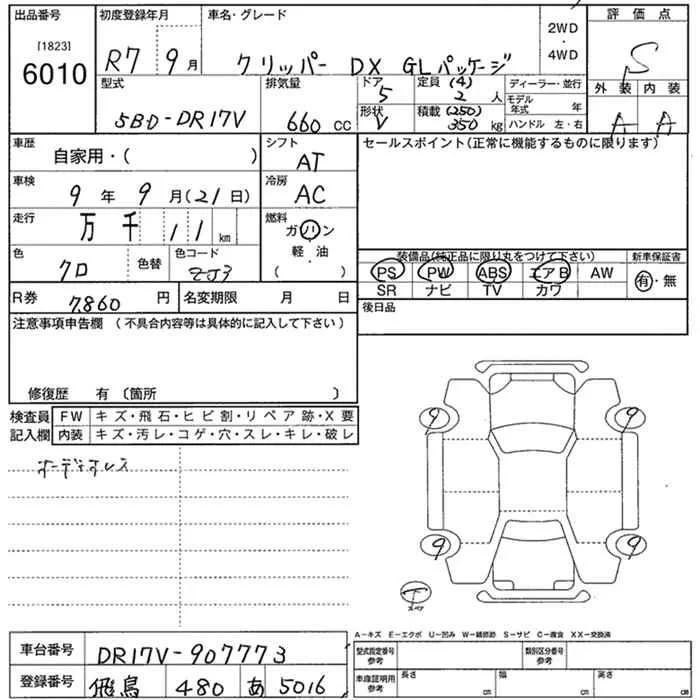 出品番号 初度登録年月 車名・グレード 2WD・4WD 評価点
[1823]
6010 R7 9月 クリッパー DX GLパッケージ S
型式 排気量 ドア 5 定員 (4) 2人 ディーラー・並行 外装 内装
5BD-DR17V 660CC 形状 V 積載 (250) 350kg モデル年式 年 A A
ハンドル 左・右
車歴 自家用・( ) シフト AT セールスポイント(正常に機能するものに限ります)
車検 9年 9月(21日) 冷房 AC
走行 万 千 11km 燃料 ガソリン 軽・油 ( )
色 クロ 色替 色コード ZJ3 装備品(純正品に限り丸をつけて下さい) 新車保証書
PS PW ABS エアB AW 有・無
SR ナビ TV カワ
R券 7,860円 名変期限 月 日 後日品
注意事項申告欄 (不具合内容等は具体的に記入して下さい)
修復歴 有 〔箇所 〕
検査員記入欄 FW キズ・飛石・ヒビ割・リペア跡・X要
内装 キズ・汚レ・コゲ・穴・スレ・キレ・破レ
オーディオレス
9 9
9 9
下
スペア
A-キズ E-エクボ U-凹み W-補修跡 S-サビ C-腐食 XX-交換済
車台番号 DR17V-907773 型式指定番号参考 類別区分番号参考
登録番号 飛鳥 480 あ 5016 車庫証明用参考 長さ cm 幅 cm 高さ cm